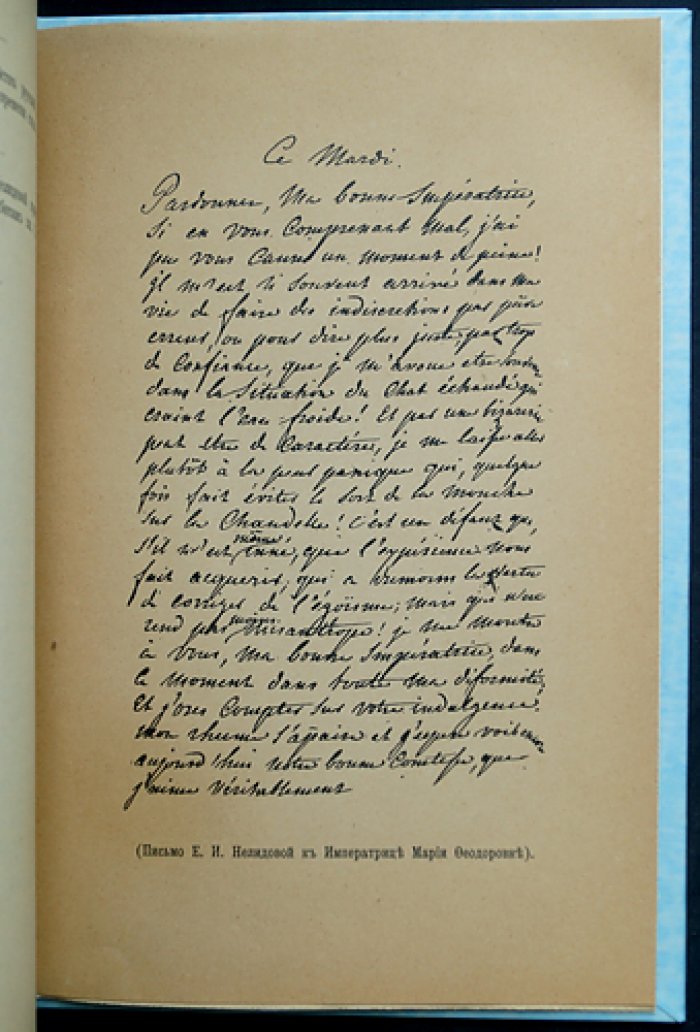 Ce Mardi.
Pardonnez, Ma bonne Impératrice,
si en vous Comprenant Mal, j'ai
pu vous Causer un moment de peine!
il m'est si souvent arrivé dans ma
vie de faire des indiscretions par
erreur, ou pour dire plus juste, par trop
de Confiance, que je m'avoue etre
dans la Situation du Chat échaudé qui
craint l'eau froide! Et par un bizarrerie
peut etre de Caractère, je me laisse aller
plutôt à la peur panique qui, quelque
fois fait éviter le sort de la Mouche
sur la Chandelle! C'est un défaut qui,
s'il n'est même inné, que l'expérience nous
fait acquerir, qui a dumoins la vertu
de corriger de l'égoïsme; Mais qui
rend pas Misantrope! je me montre
à vous, Ma bonne Impératrice, dans
le moment dans toute Ma diformité,
Et j'ose Compter sur votre indulgence.
Mon rhume s'apaise et j'espere voir
aujourd'hui notre bonne Comtesse, que
j'aime Véritablement
(Письмо Е. И. Нелидовой къ Императрицѣ Маріи Ѳеодоровнѣ).